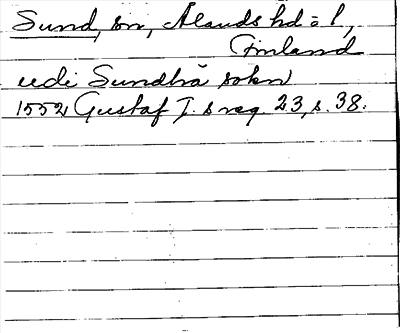 Sund, sn, Ålands hd = l,
Finland
udi Sundha sokn
1552 Gustaf I. s reg. 23, s. 38.